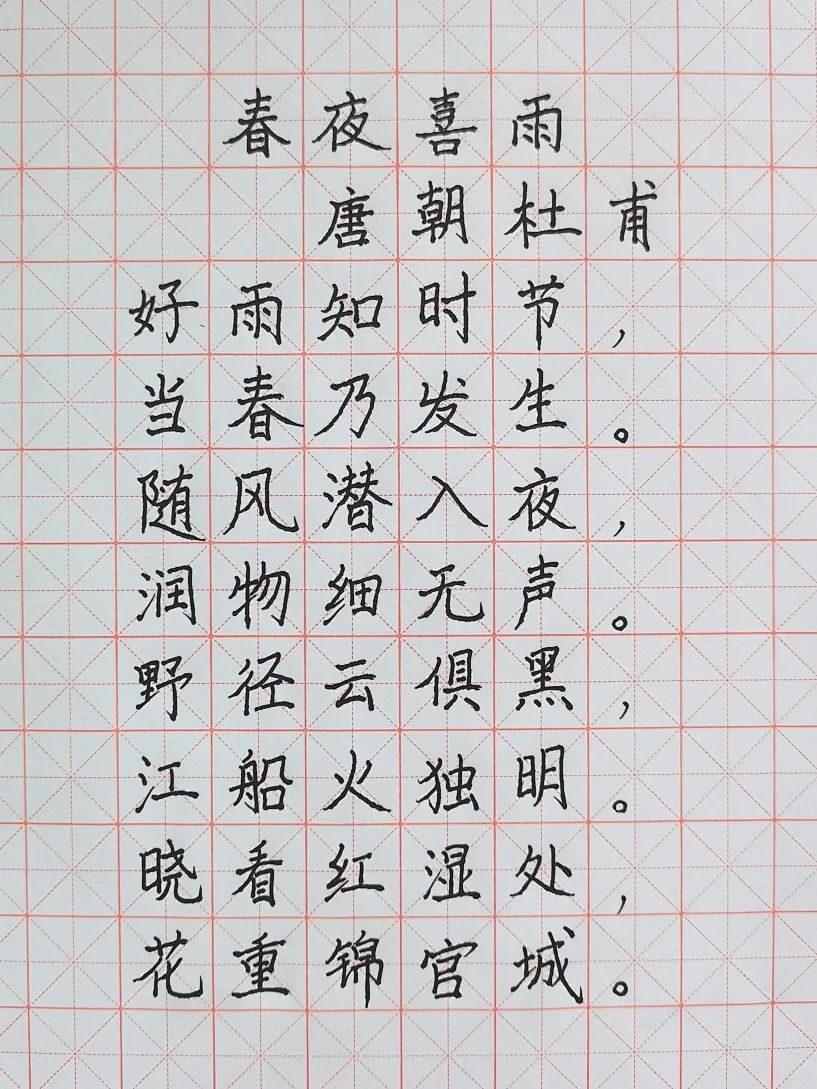 春夜喜雨
唐朝杜甫
好雨知时节，
当春乃发生。
随风潜入夜，
润物细无声。
野径云俱黑，
江船火独明。
晓看红湿处，
花重锦官城。